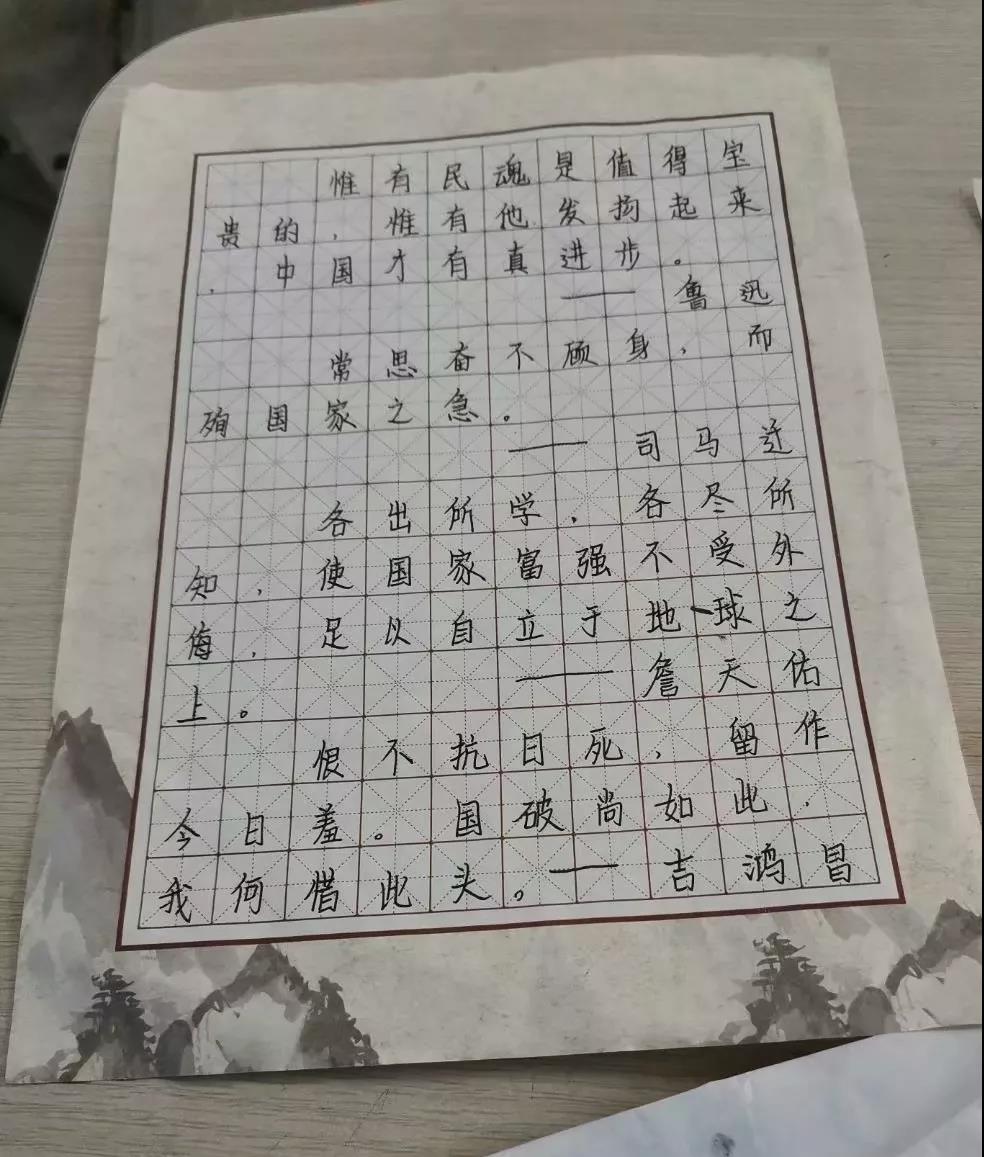 惟有民魂是值得宝
贵的，惟有他发扬起来
，中国才有真进步。
——鲁迅
常思奋不顾身，而
殉国家之急。
——司马迁
各出所学，各尽所
知，使国家富强不受外
侮，足以自立于地球之
上。——詹天佑
恨不抗日死，留作
今日羞。国破尚如此，
我何惜此头。——吉鸿昌